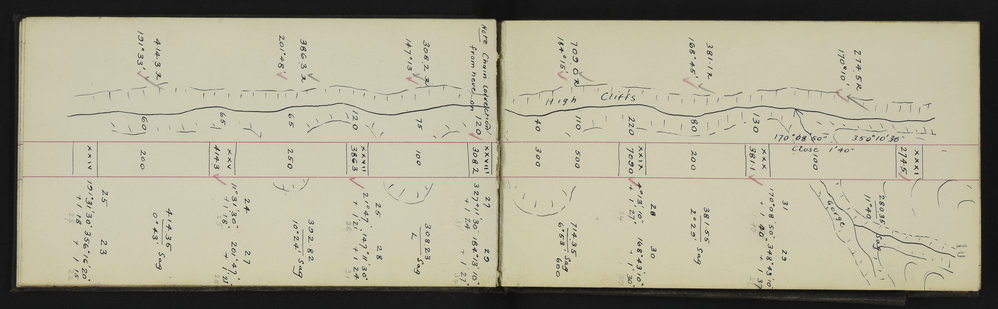 Note Chain correction
from here on
414.3 R
191°33'
386.3 R
201°48'
308.2 R
147°13'
709.0 R
184°15'
381.1 R
168°45'
274.5 R
170°10'
High Cliffs
170°08'50"
350°10'30"
Close 1'40"
60
65
65
120
75
120
40
110
220
80
130
XXIV
200
XXV
414.3
250
XXVII
386.3
100
XXVIII
308.2
300
500
XXIX
709.0
200
XXX
381.1
100
XXXI
274.5
Gorge
280.35
11°40' Sag
10
25
191°31'30"
+ 1 18
23
356°16'20"
+ 1 15
414.35
0°43' Sag
24
11°31'30"
+ 1 18
27
201°47'
+ 1 21
392.82
10°24' Sag
25
21°47'
+ 1 21
28
147°11'30"
+ 1 24
308.23
L Sag
27
327°11'30"
+ 1 24
29
184°13'10"
+ 1 27
714.35
6°53' Sag
600
28
4°13'10"
+ 1 27
30
168°43'10"
+ 1 30
381.55
2°29' Sag
31
170°08'50"
+ 1 40
29
348°43'10"
+ 1 37